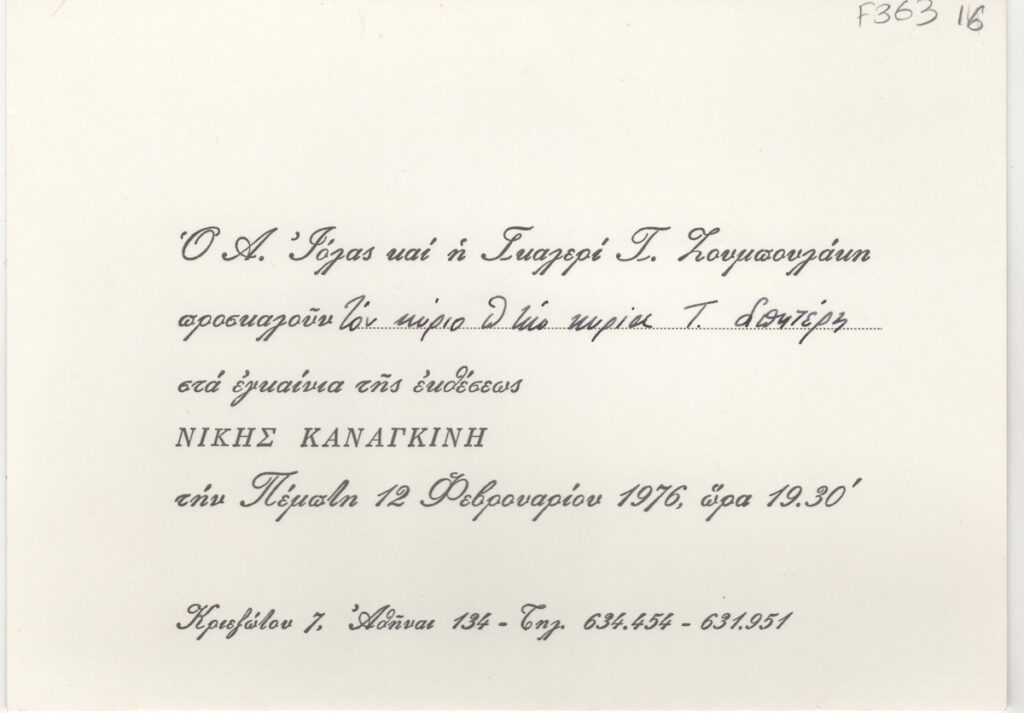 F363 16
Ὁ Α. Ἰόλας καί ἡ Γκαλερί Τ. Ζουμπουλάκη
προσκαλοῦν τόν κύριο & τήν κυρία Τ. Σπητέρη
στά ἐγκαίνια τῆς ἐκθέσεως
ΝΙΚΗΣ ΚΑΝΑΓΚΙΝΗ
τήν Πέμπτη 12 Φεβρουαρίου 1976, ὥρα 19.30'
Κριεζώτου 7, Ἀθῆναι 134 - Τηλ. 634.454 - 631.951